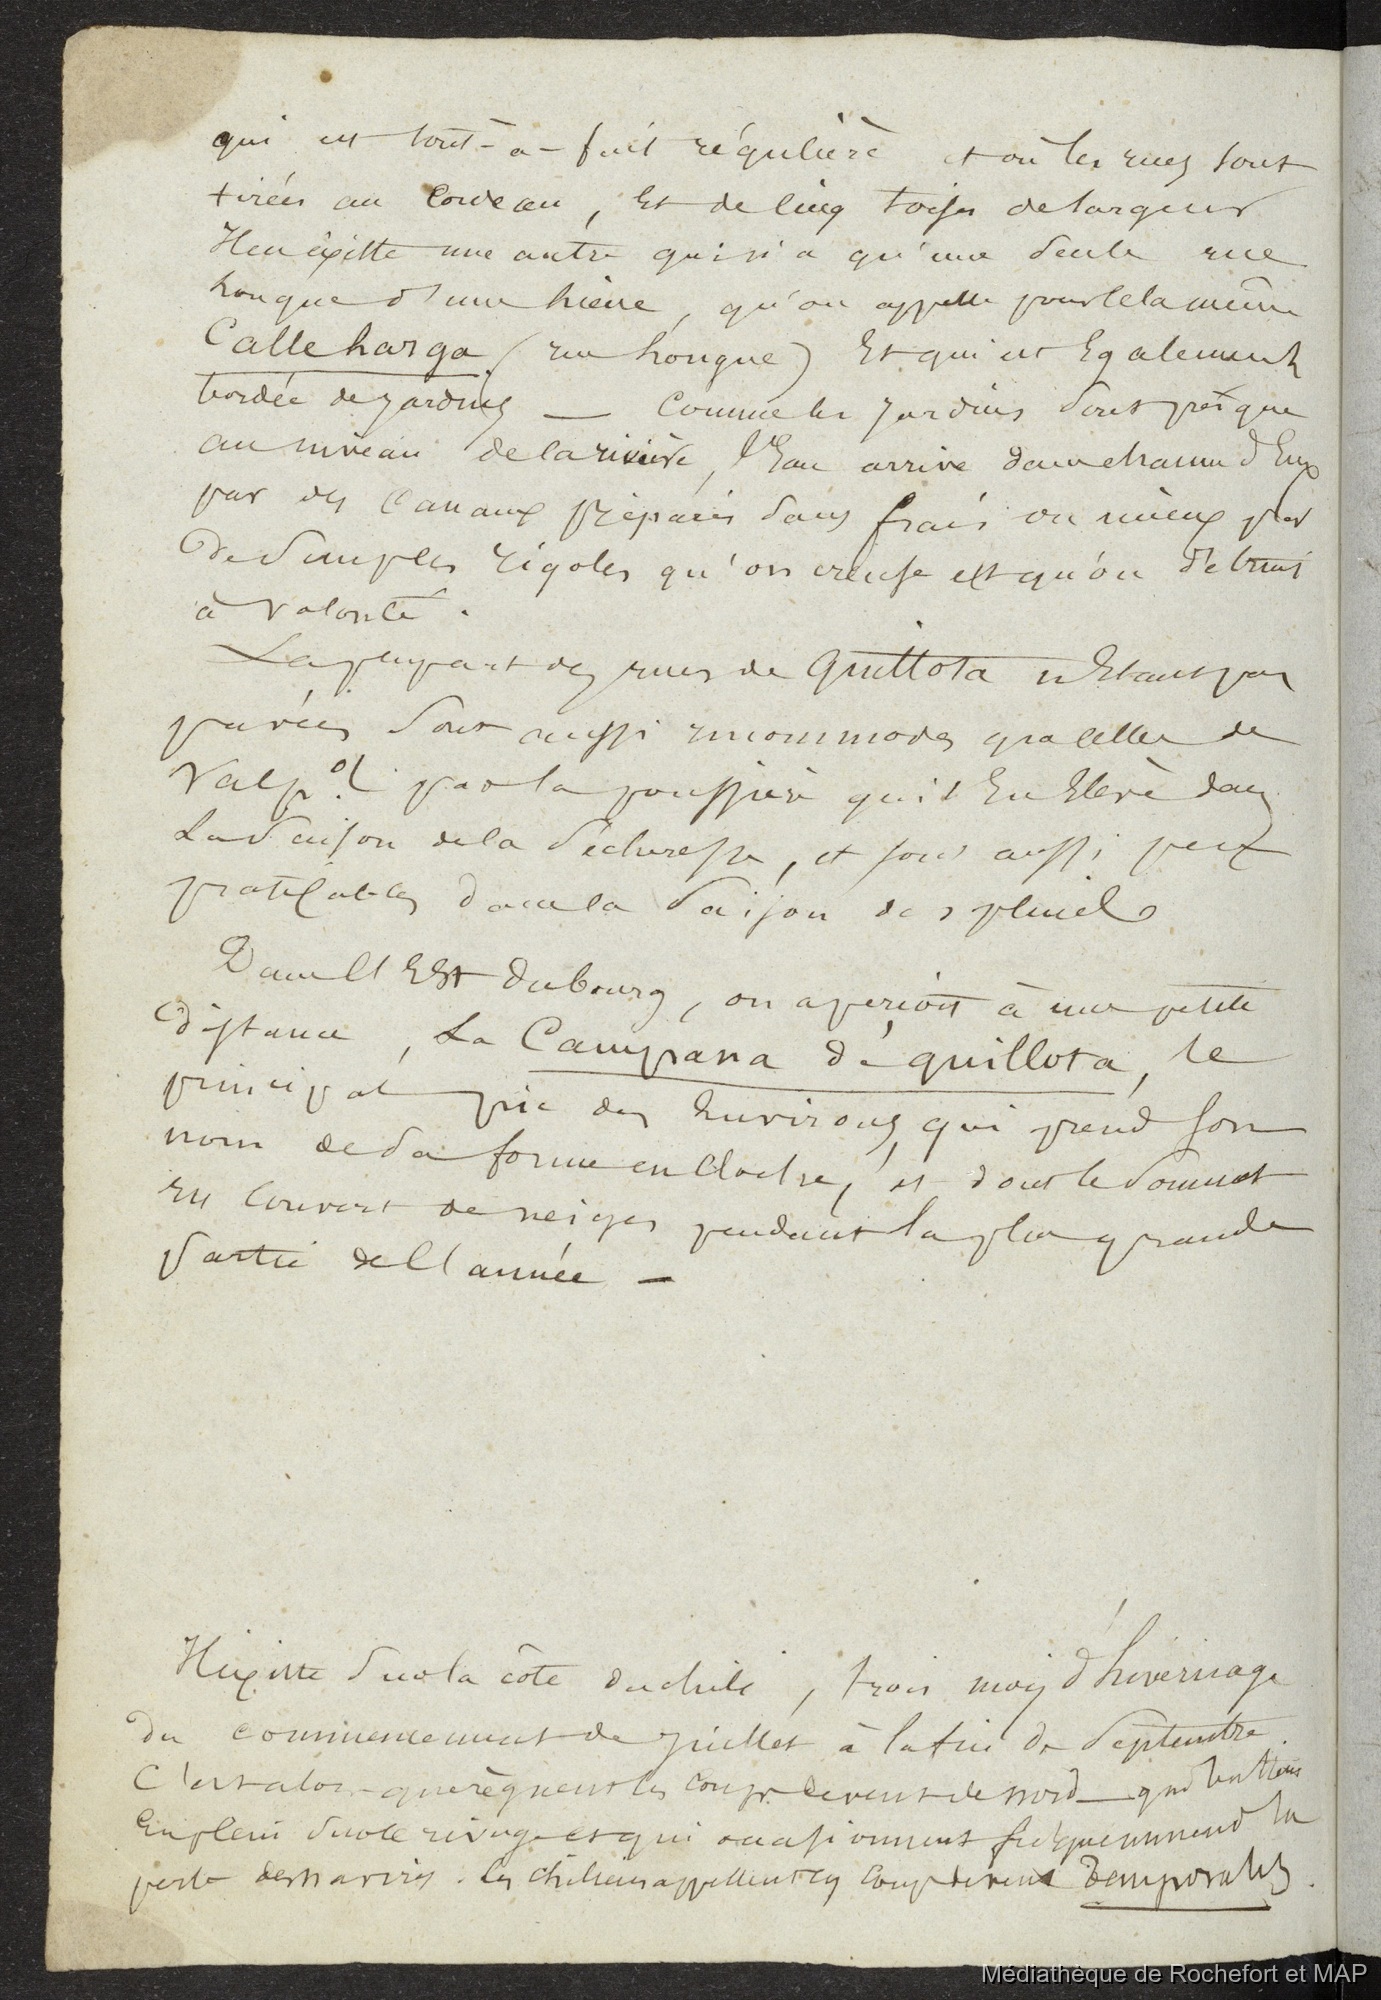 qui est tout-à-fait régulière et où les rues sont
tirées au cordeau, et de cinq toises de largeur
Il en existe une autre qui n'a qu'une seule rue
longue d'une lieue, qu'on appelle pour cela même
Calle larga (rue longue) Et qui est Egalement
bordée de jardins — comme les jardins sont presque
au niveau de la rivière, l'Eau arrive dans chacun d'Eux
par des canaux préparés sans frais ou mieux par
de simples rigoles qu'on creuse et qu'on détruit
à volonté.
La plupart des rues de Quillota n'Etant pas
pavées sont aussi incommodes que celles de
Valp.º par la poussière qui s'En Elève dans
La saison de la sécheresse, et sont aussi peu
praticables dans la saison des pluies
Dans l'Est du bourg, on aperçoit à une petite
distance, La Campana de quillota, le
principal pic des Environs, qui prend son
nom de sa forme en cloche, et dont le sommet
est couvert de neiges pendant la plus grande
partie de l'année —
Il existe sur la côte du chili, trois mois d'hivernage
du commencement de juillet à la fin de septembre.
C'est alors que règnent les coups de vent de nord qui battent
En plein sur le rivage et qui occasionnent fréquemment la
perte des navires. les chiliens appellent ces coups de vent Temporales.
Médiathèque de Rochefort et MAP